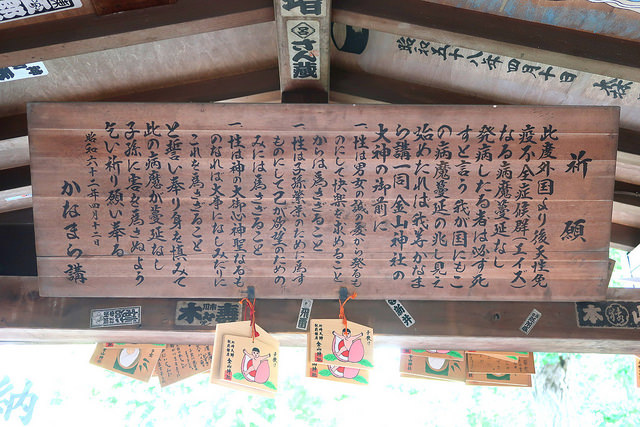 祈願
此度外国より後天性免
疫不全症候群(エイズ)
なる病魔蔓延なし
発病したる者は必ず死
すと言う我が国にもこ
の病魔蔓延の兆し見え
始めたれば我等かなま
ら講一同金山神社の
大神の御前に
一、性は男女の誠の愛から発るも
のにして快楽を求めること
からは為さざること
一、性は子孫繁栄のために為す
ものにして己が欲望のための
みには為さざること
一、性は神の大御心神聖なるも
のなれば大事になしみだりに
これを為さざること
と誓い奉り身を慎みて
此の病魔が蔓延なし
子孫に害を為さぬよう
乞い祈り願い奉る
昭和六十二年四月十二日
かなまら講
さん蔵
昭和五十八年四月十日